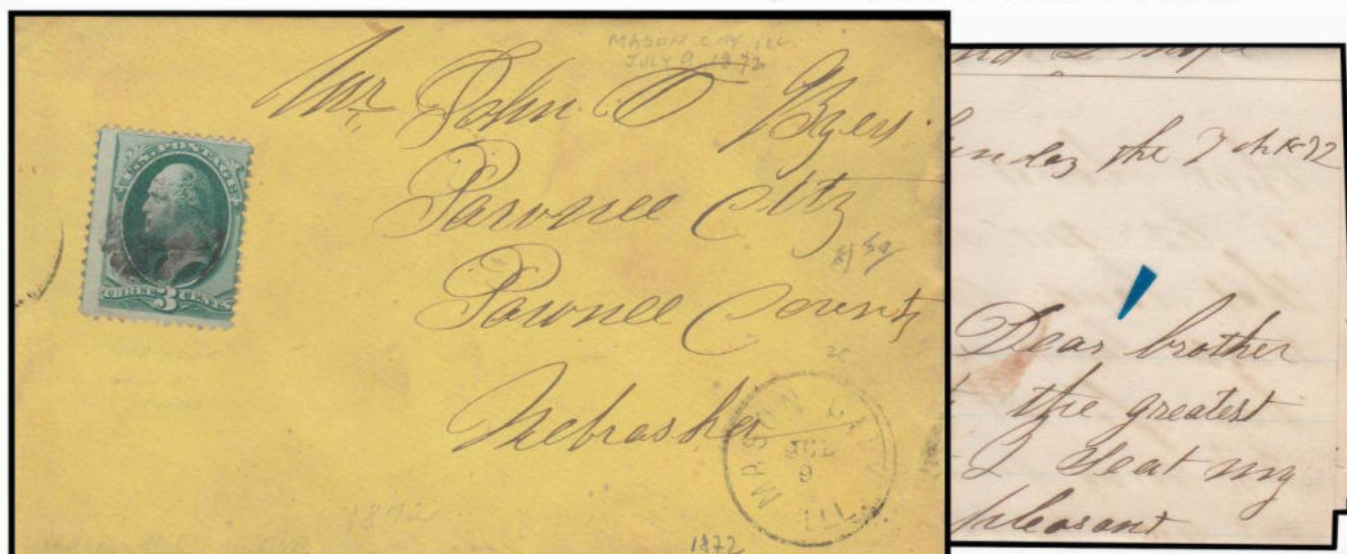 MASON CITY, ILL.
JULY 9, 1872
Mr John Byers
Pawnee City
Pawnee County
Nebraska
U.S. POSTAGE
THREE 3 CENTS
MASON CITY
JUL
9
ILL
1872
1872
the 7th 1872
Dear brother
the greatest
I Seat my
pleasant